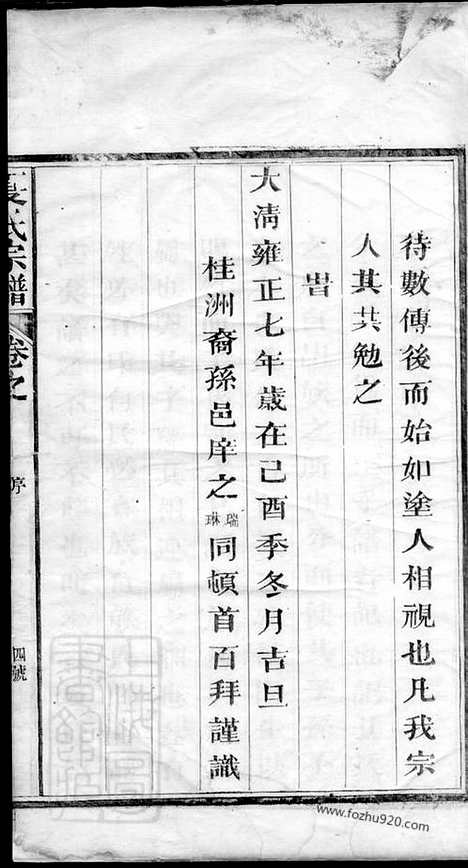 待數傳後而始如塗人相視也凡我宗
人其共勉之
旹
大清雍正七年歲在己酉季冬月吉旦
桂洲裔孫邑庠之瑞琳同頓首百拜謹識
氏宗譜
卷之
序
四號
www.fozhu920.com